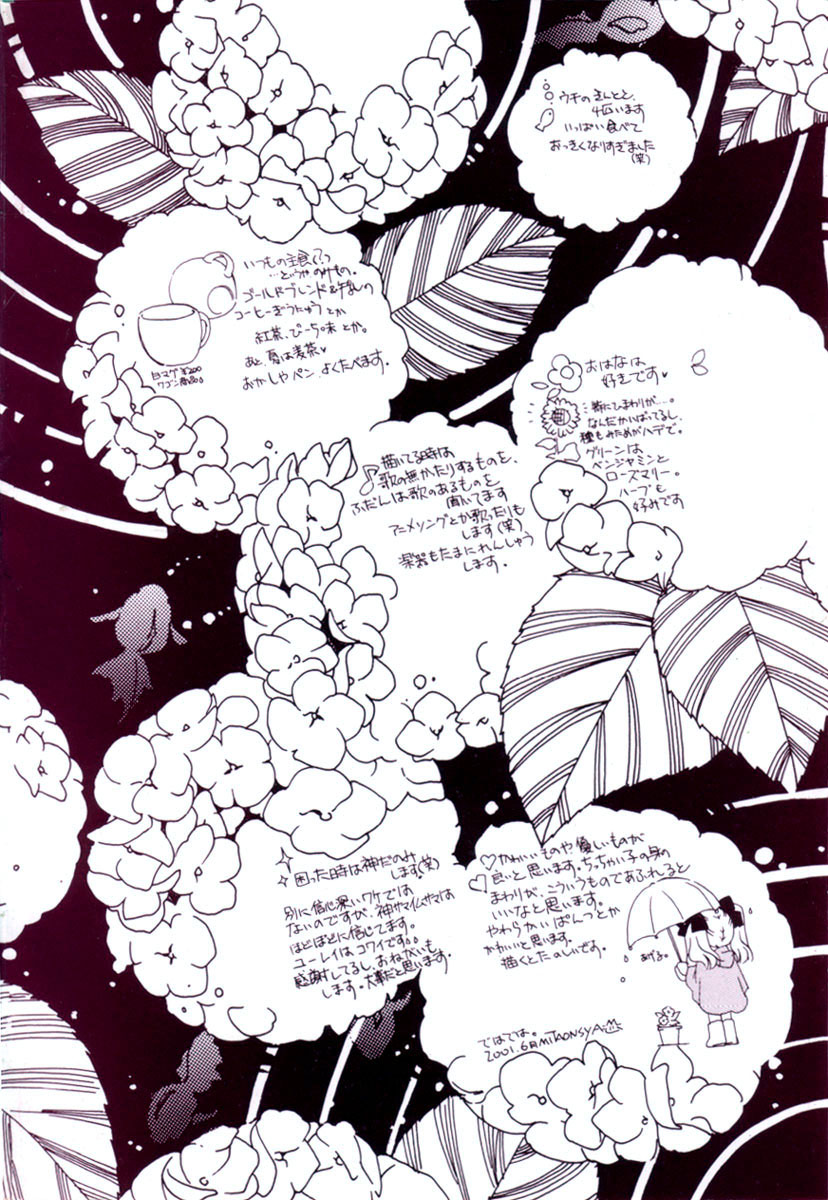 ウチのきんとと、
4匹います
いっぱい食べて
おっきくなりすぎました
(笑)
いつもの主食(?)っ
…というかのみもの。
ゴールドブレンド&
コーヒーぎうにゅうとか
紅茶、ぴーち味とか。
あと、夏は麦茶♥
おかしやパン、よくたべます。
白マグ ¥200
ワゴン
おはなは
好きです♥
…特にひまわりが…。
なんたかいばってるし、
種もみためがハデで。
グリーンは
ベンジャミンと
ローズマリー。
ハーブも
好みです
♪描いてる時は
歌の無かたりするものを、
ふだんは歌のあるものを
聞いてます
アニメソングとか歌ったりも
します(笑)
楽器もたまにれんしゅう
します。
困った時は神だのみ
します(笑)
別に信心深いワケでは
ないのですが、神サマイムサマは
ほどほどに信じてます。
ユーレイはコワイです
感謝してるし、おねがいも
します。大事だと思います。
♡かわいいものや優しいものが
♡良いと思います。ちっちゃい子の身の
まわりが、こういうものであふれると
いいなと思います。
やわらかいぱんつとか
かわいいと思います。
描くとたのしいです。
あげる。
ではでは。
2001.6月 MITAONSYA